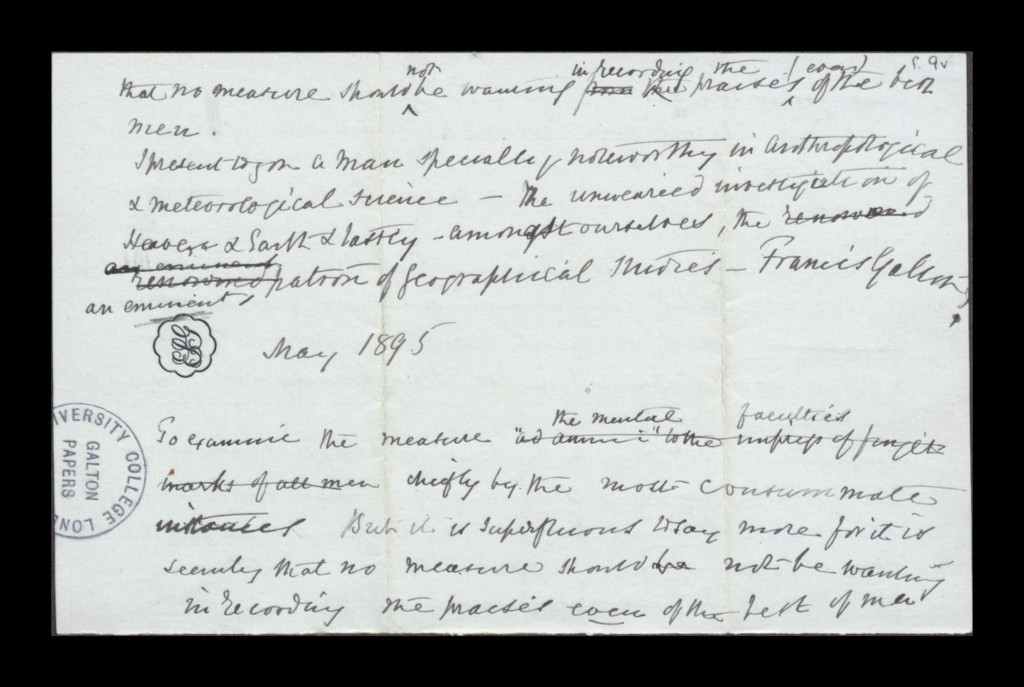 f. 9v
not in recording the (even)
that no measure should be wanting the praises of the best
men.
I present to you a man specially noteworthy in anthropological
& meteorological science — the unwearied investigation of
Heavens & Earth & lastly - amongst ourselves, the renowned
an eminent
renowned patron of geographical studies — Francis Galton
an eminent
May 1895
the mental faculties
To examine the measure "ad animi" to the imprefs of finger
marks of all men chiefly by the most consummate
instances But it is superfluous to say more for it is
seemly that no measure should not be wanting
in recording the praises even of the best of men
UNIVERSITY COLLEGE LOND
GALTON
PAPERS